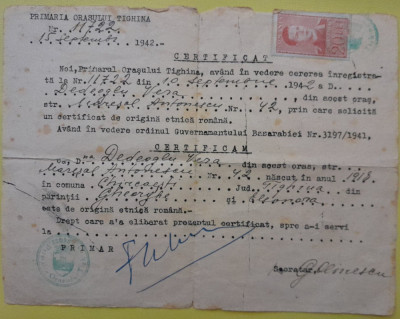 PRIMARIA ORAŞULUI TIGHINA
Nr. 11722
15 Septembrie 1942.-
CERTIFICAT
Noi, Primarul Oraşului Tighina, având în vedere cererea înregistra-
tă la Nr. 11722 din 10. Septembrie 1942 a D.
Dedeoglu Vera din acest oraş,
str. Mareşal Antonescu Nr. 42, prin care solicită
un certificat de origină etnică română.
Având în vedere ordinul Guvernamantului Basarabiei Nr.3197/1941.
CERTIFICAM
că, D. Dedeoglu Vera din acest oraş, str.
Mareşal Antonescu Nr. 42 născut în anul
în comuna Jud. Tighina din
părinţii Gheorghe şi
este de origină etnică română.-
Drept care s'a eliberat prezentul certificat, spre a-i servi
la
PRIMAR
Secretar,